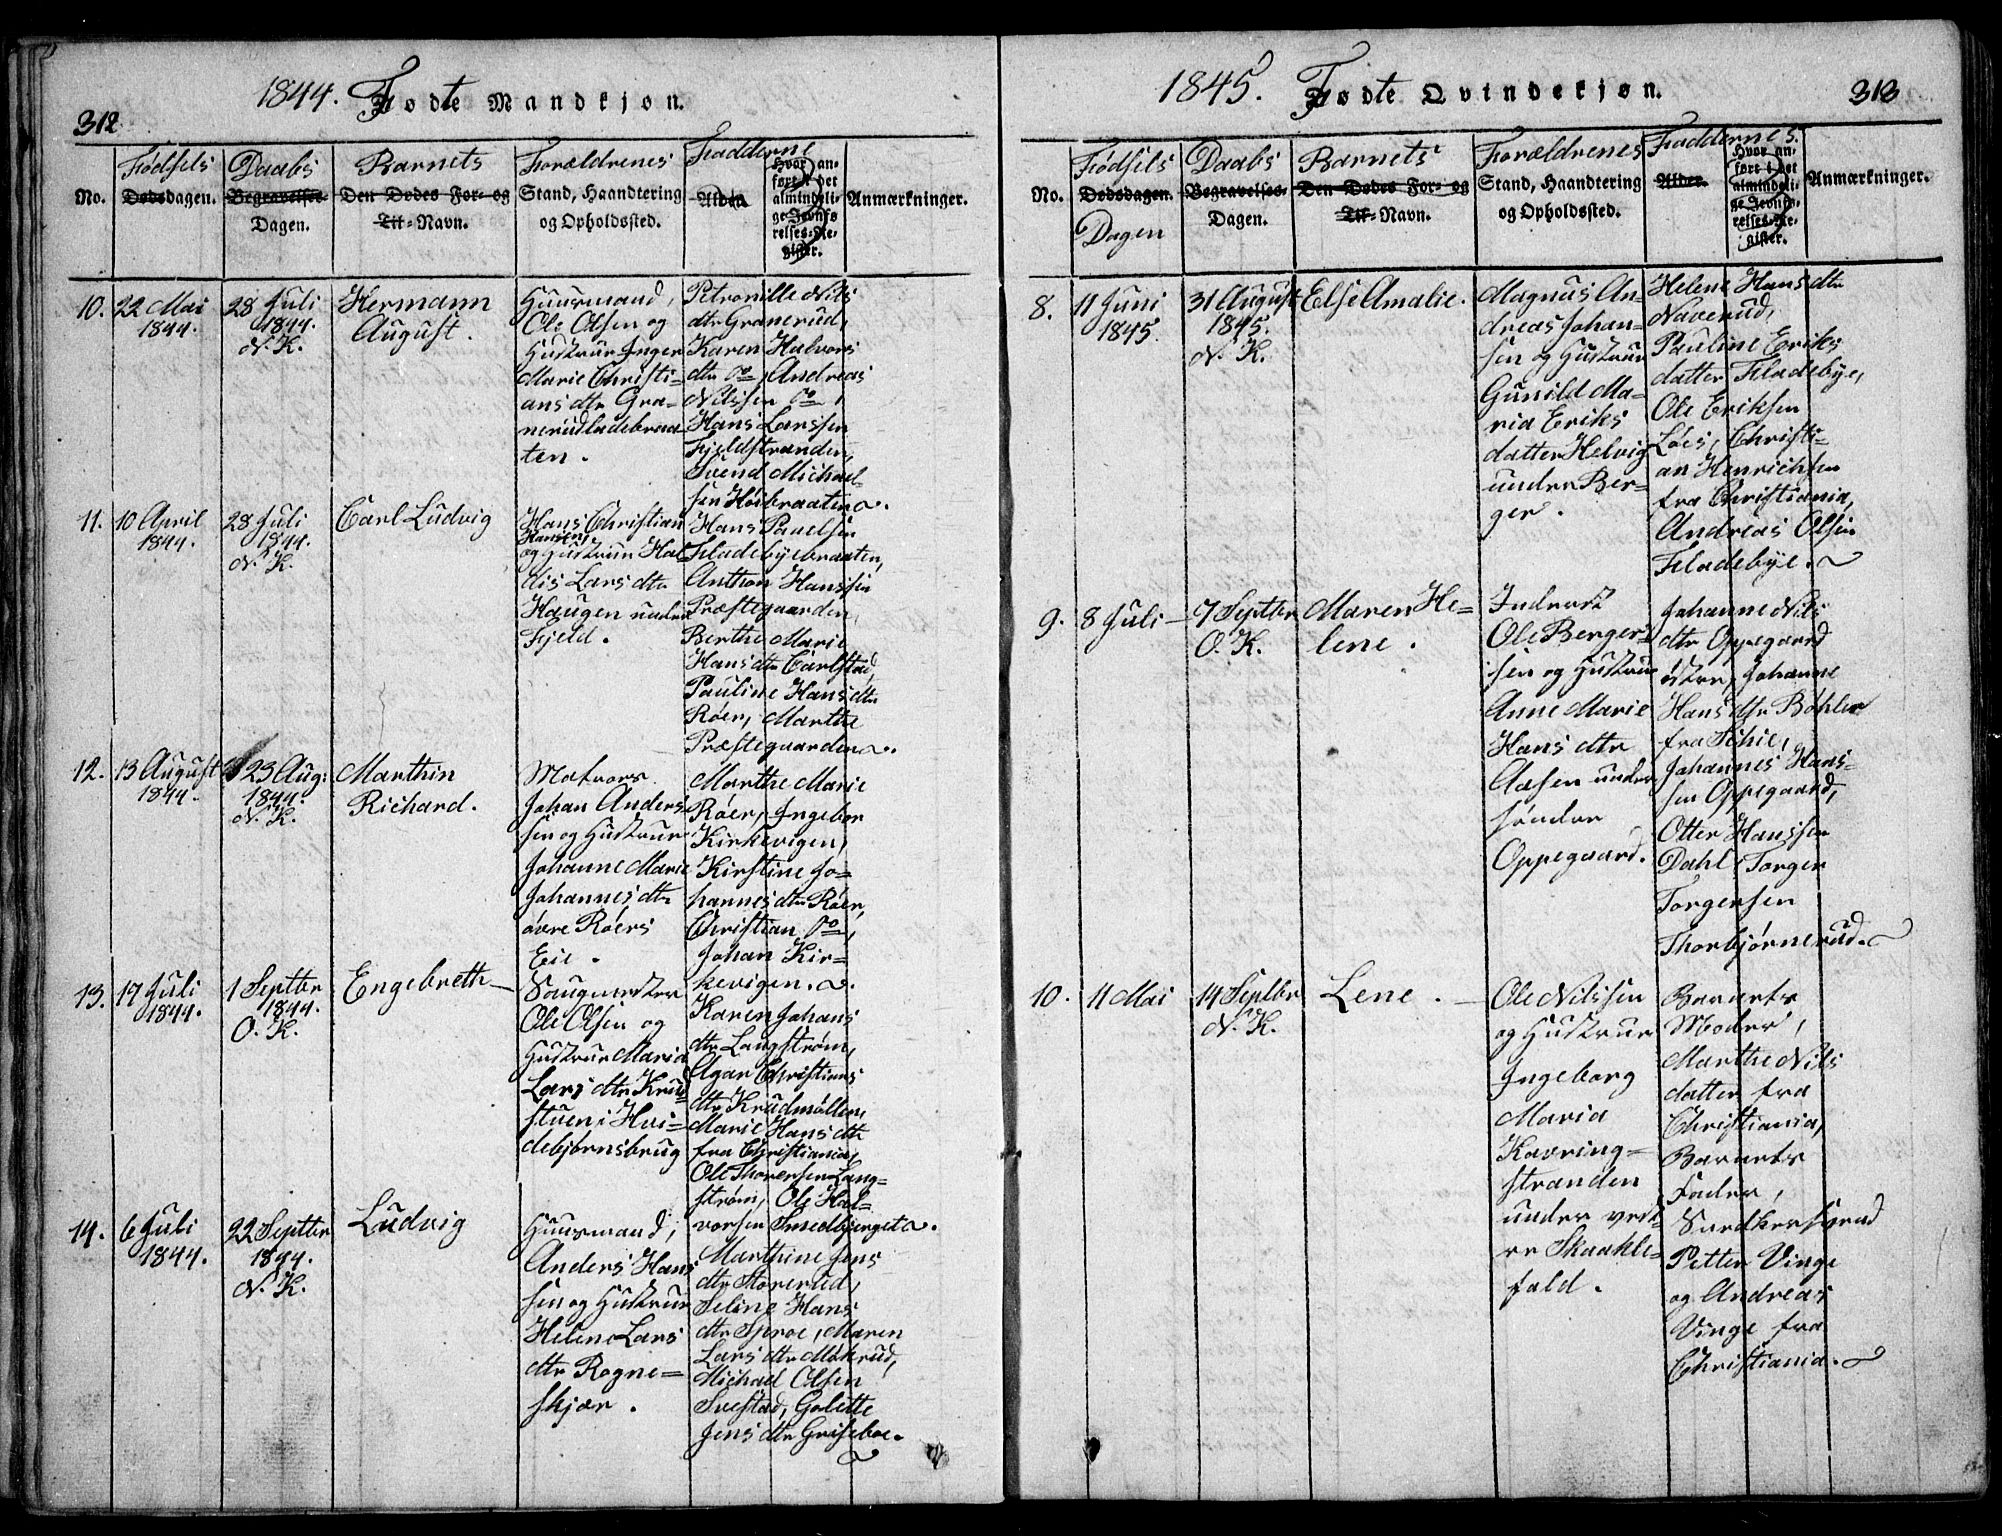 312
1844. Fødte Mandkjøn.
No.
Fødsels
Dødsdagen.
Daabs
Begravelses-
Dagen.
Barnets
Den Dødes For- og
Til-Navn.
Forældrenes
Stand, Haandtering
og Opholdssted.
Fadderne
Alder.
Hvor an-
ført i det
almindeli-
ge Jevnfø-
relses-Re-
gister.
Anmærkninger.
10.
22 Mai
1844.
28 Juli
1844.
N. K.
Hermann
August.
Huusmand,
Ole Olsen og
Hustrue Inger
Marie Christi-
ansdtr Gra-
nerudladebraa-
ten.
Petronille Nils
dtr Granerud,
Karen Halvors
dtr do, Andreas
Nilssen do,
Hans Larssen
Fjeldstranden,
Svend Michael-
sen Høibraaten.
11.
10 April
1844.
28 Juli
1844.
N. K.
Carl Ludvig
Hans Christian
Hansen,
og Hustrue Hal
dis Lars dtr
Haugen under
Fjeld.
Hans Pauelsen
Fladebyebraaten,
Anthon Hanssen
Præstegaarden,
Berthe Marie
Hans dtr Carlstad,
Pauline Hans dtr
Røer, Marthe
Præstegaarden.
12.
13 August
1844.
23 Aug:
1844.
N. K.
Marthin
Richard.
Matros
Johan Anders-
sen og Hustrue
Johanne Marie
Johannes dtr
øvre Røers
Eie.
Marthe Marie
Røer, Ingebor
Kirkevigen,
Kirstine Jo-
hannes dtr Røer,
Christian do,
Johan Kir-
kevigen.
13.
17 Juli
1844.
1 Septbr
1844.
O. K.
Engebreth
Saugmester
Ole Olsen og
Hustrue Maria
Lars dtr Krud-
stuen i Hvi-
debjørnsbrug
Karen Johans
dtr Langstrøm,
Agar Christians
dtr Krudmøllen,
Marie Hans dtr
fra Christiania,
Ole Thoresen Lang-
strøm, Ole Hal-
vorsen Smedbjerget.
14.
6 Juli
1844.
22 Septber
1844.
N. K.
Ludvig
Huusmand,
Anders Hans
sen og Hustrue
Helene Lars
dtr Rogne-
skjær.
Marthine Jens
dtr Storerud,
Seline Hans
dtr Sproe, Maren
Lars dtr Mökrud,
Michael Olsen
Svestad, Golette
Jens dtr Griseboe.
313
1845. Fødte Qvindekjøn.
No.
Fødsels
Dødsdagen.
Dagen
Daabs
Begravelses-
Dagen.
Barnets
Den Dødes For- og
Til-Navn.
Forældrenes
Stand, Haandtering
og Opholdssted.
Faddernes.
Alder.
Hvor an-
ført i det
almindeli-
ge Jevnfø-
relses-Re-
gister.
Anmærkninger.
8.
11 Juni
1845.
31 August
1845.
N. K.
Else Amalie.
Magnus An-
dreas Johan-
sen og Hustrue
Gunild Ma-
ria Eriks
datter Helvig
under Ber-
ger.
Helene Hans dtr
Naverud,
Pauline Eriks
datter Fladebye,
Ole Eriksen
Löes, Christi-
an Henrichsen
fra Christiania,
Andreas Olsen
Fladebye.
9.
8 Juli
7 Septbr
O. K.
Maren He-
lene.
Inderst
Ole Berger-
sen og Hustrue
Anne Marie
Hans dtr
Aasen under
søndre
Oppegaard.
Johanne Nils
dtr Oppegaard
østre, Johanne
Hans dtr Bøhler
fra Schie,
Johannes Hans-
sen Oppegaard,
Otter Hanssen
Dahl Torger
Torgersen
Thorbjørnerud.
10.
11 Mai
14 Septbr
N. K.
Lene.
Ole Nilssen
og Hustrue
Ingeborg
Maria
Kavring-
stranden
under vest-
re Skaahle-
fald.
Barnets
Moder,
Marthe Nils
datter fra
Christiania,
Barnets
Fader,
Snedkersvend
Petter Vinge
og Andreas
Vinge fra
Christiania.